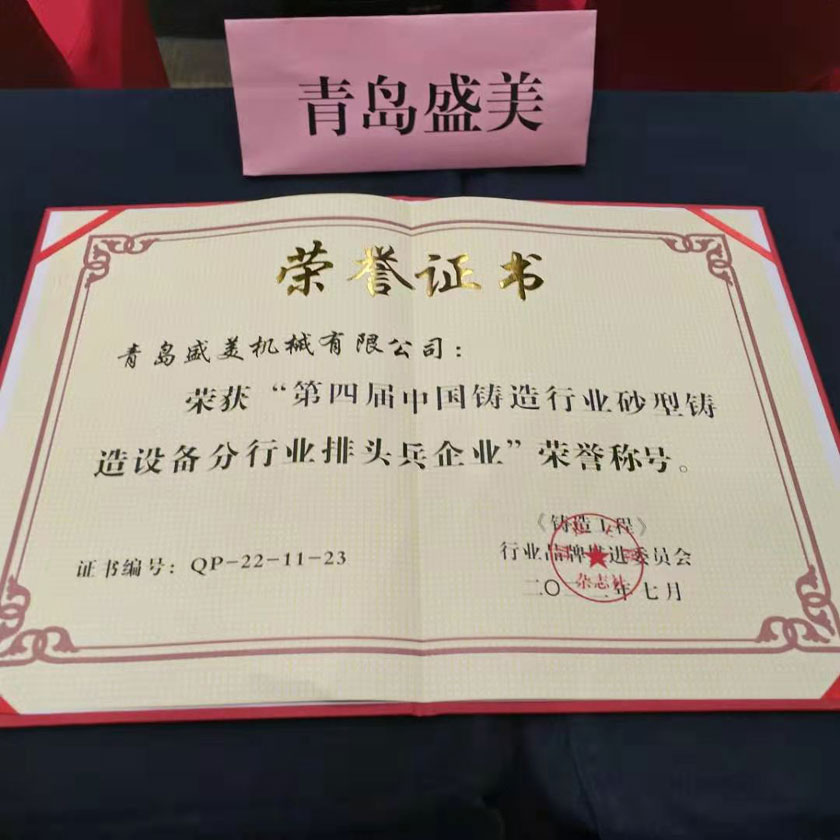 青岛盛美
荣誉证书
青岛盛美机械有限公司：
荣获“第四届中国铸造行业砂型铸
造设备分行业排头兵企业”荣誉称号。
《铸造工程》
行业品牌推进委员会
证书编号：QP-22-11-23
二〇二二年七月
杂志社